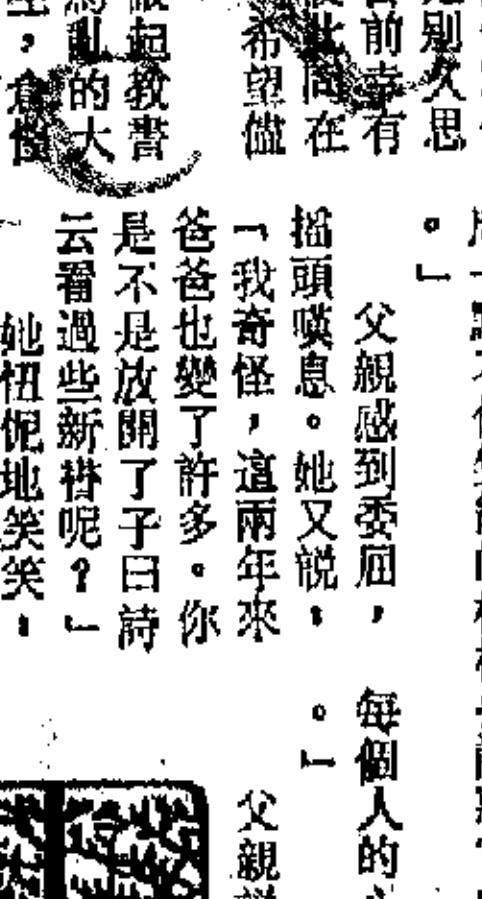 別久思
前幸有
此間在
希望儘
起教書
亂的大
。」
父親感到委屈，
搖頭嘆息。她又說，
「我奇怪，這兩年來
爸爸也變了許多。你
是不是放開了子曰詩
云看過些新書呢？」
她忸怩地笑笑，
每個人的
。」
父親說